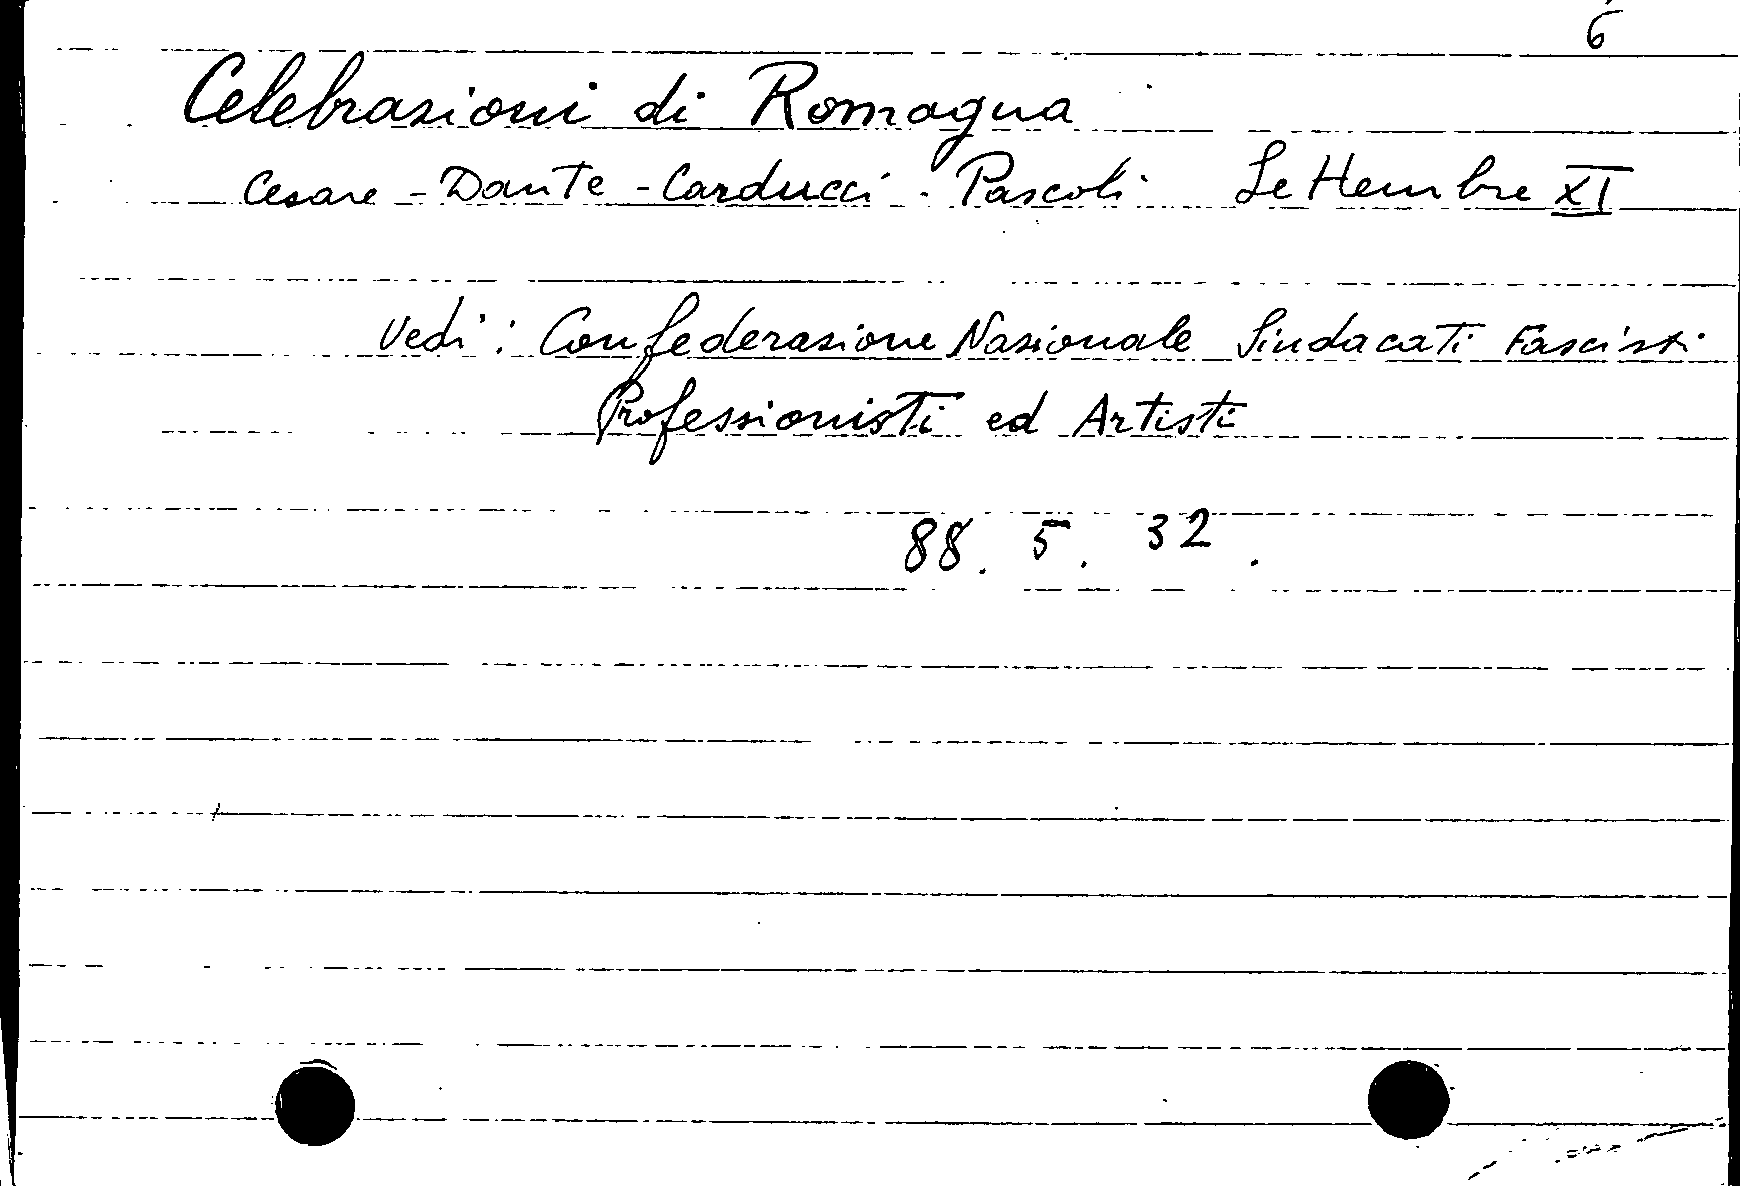 6
Celebrazioni di Romagna
Cesare - Dante - Carducci - Pascoli Settembre XI
Vedi: Confederazione Nazionale Sindacati Fascisti
Professionisti ed Artisti
88. 5. 32.